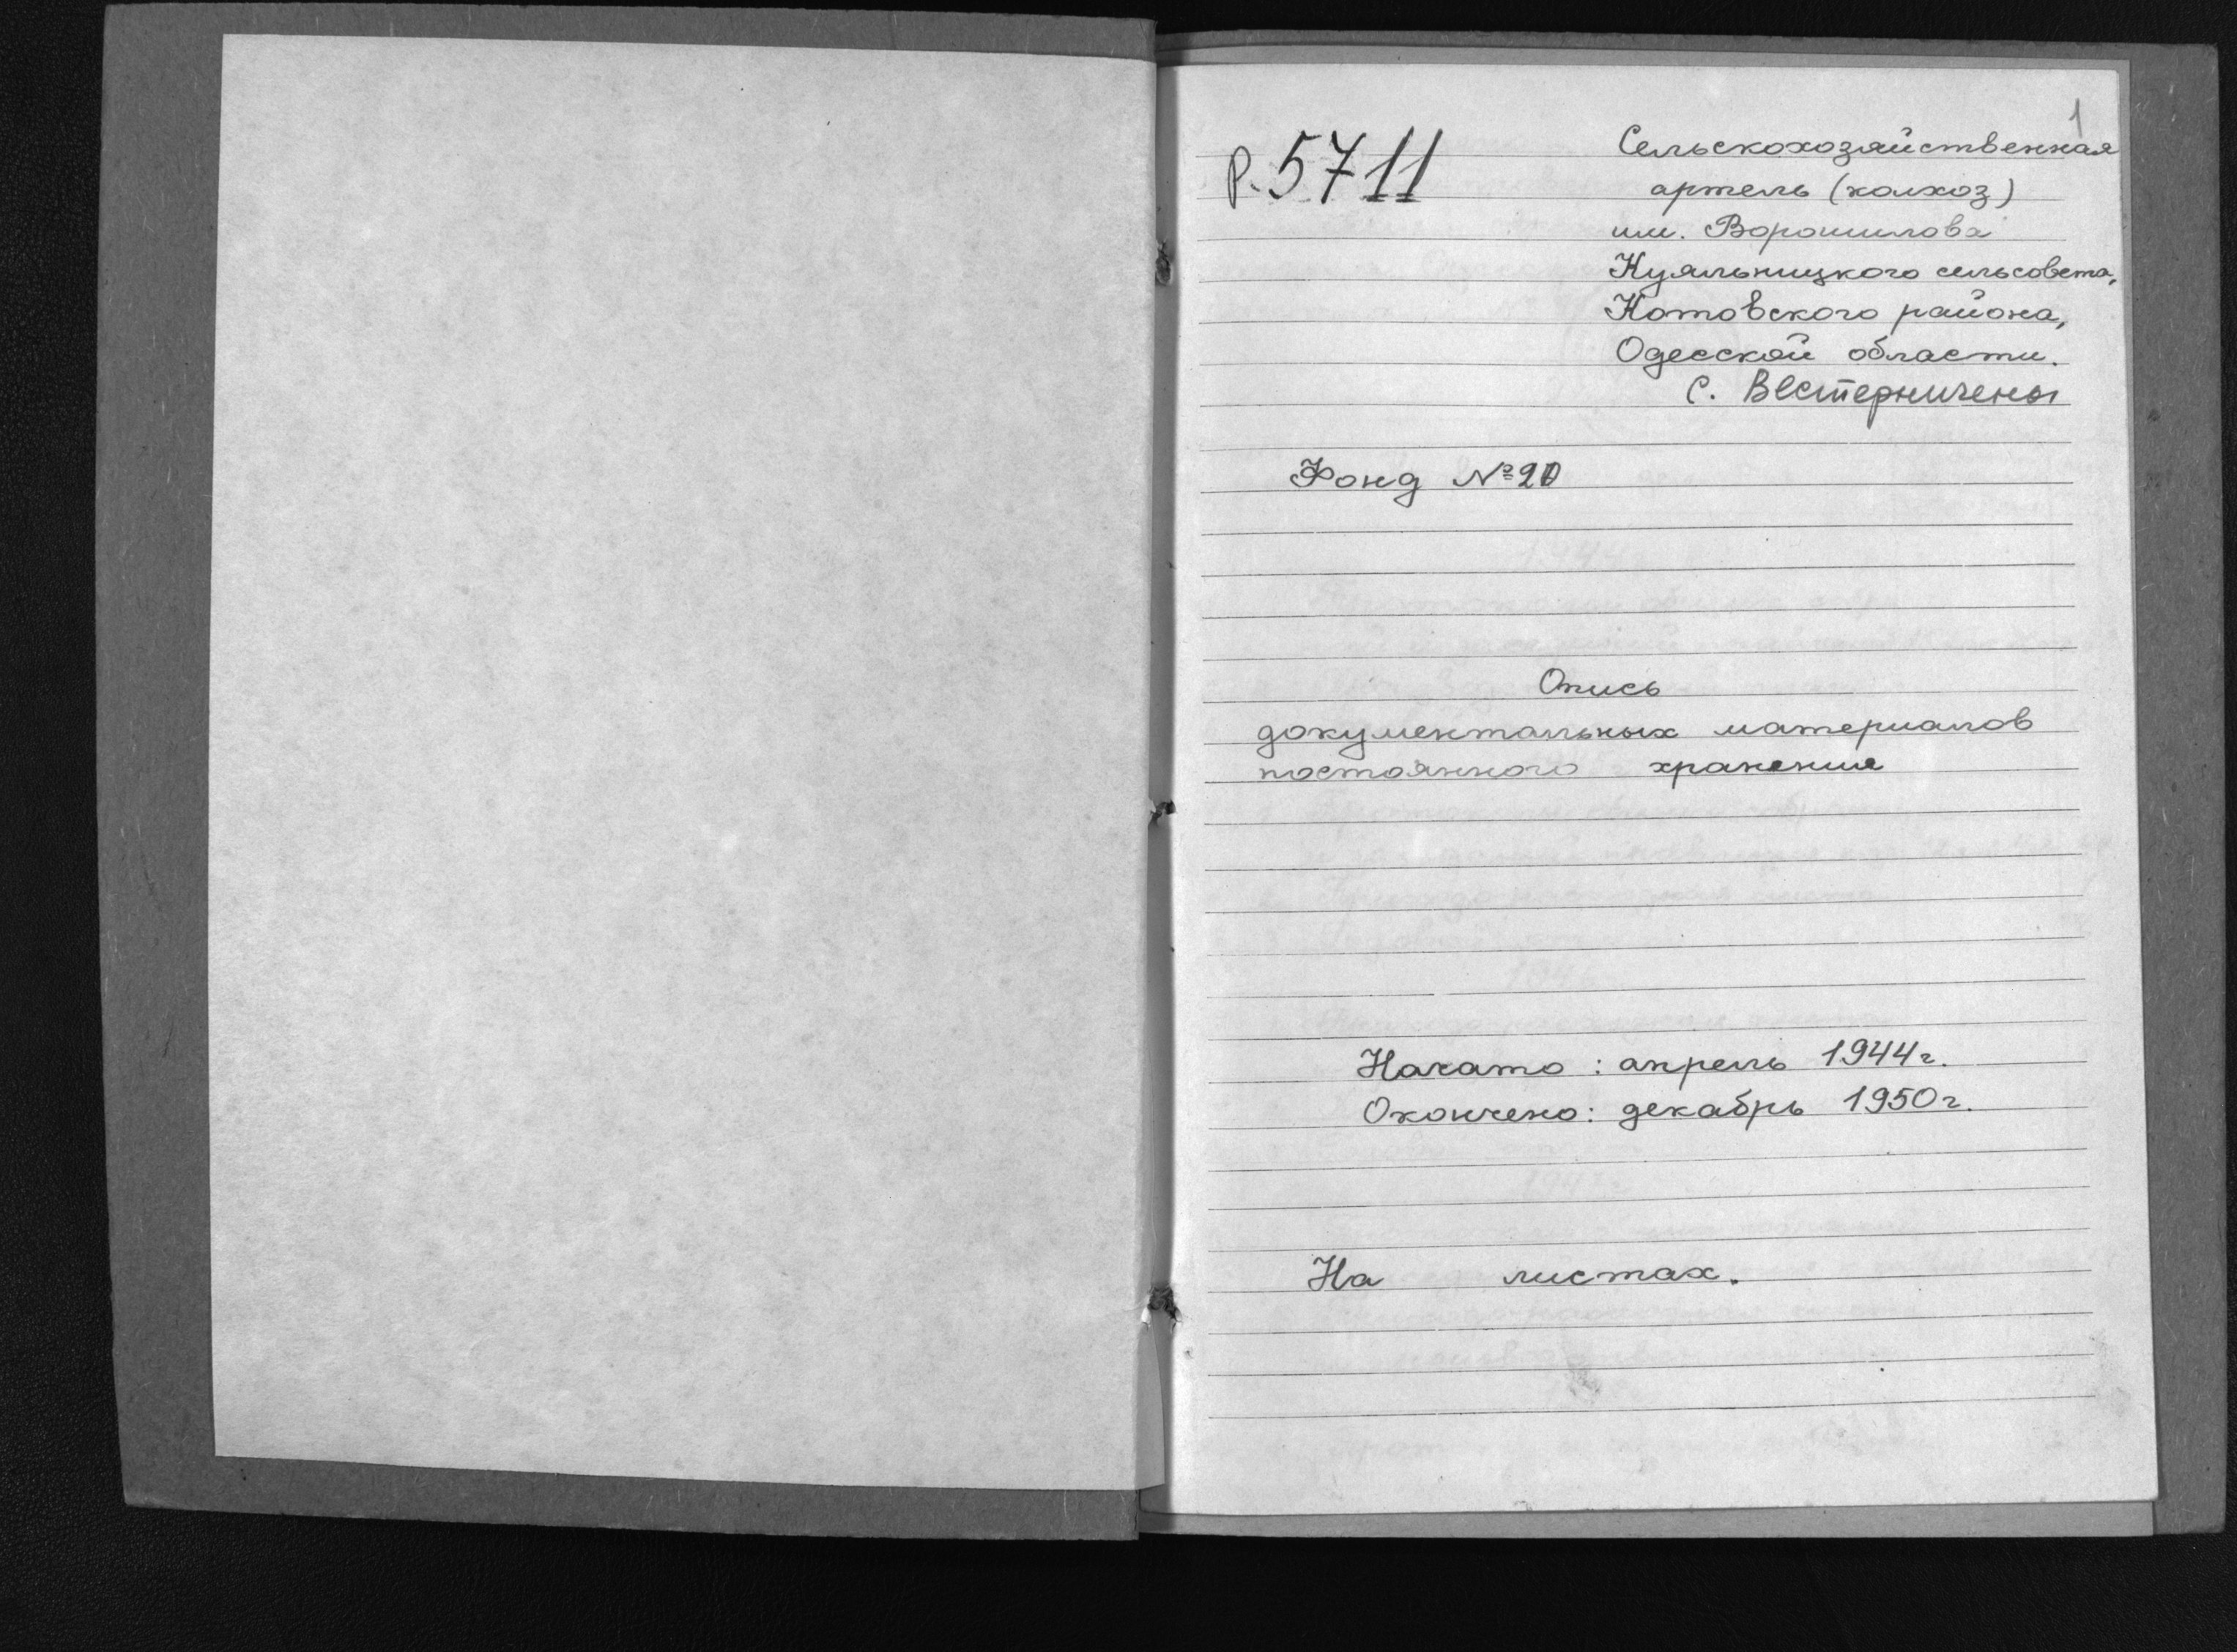 1
Р. 5711
Сельскохозяйственная
артель (колхоз)
им. Ворошилова
Куяльницкого сельсовета,
Котовского района,
Одесской области.
с. Вестерничены
Фонд №20
Опись
документальных материалов
постоянного хранения
Начато: апрель 1944г.
Окончено: декабрь 1950г.
На листах.